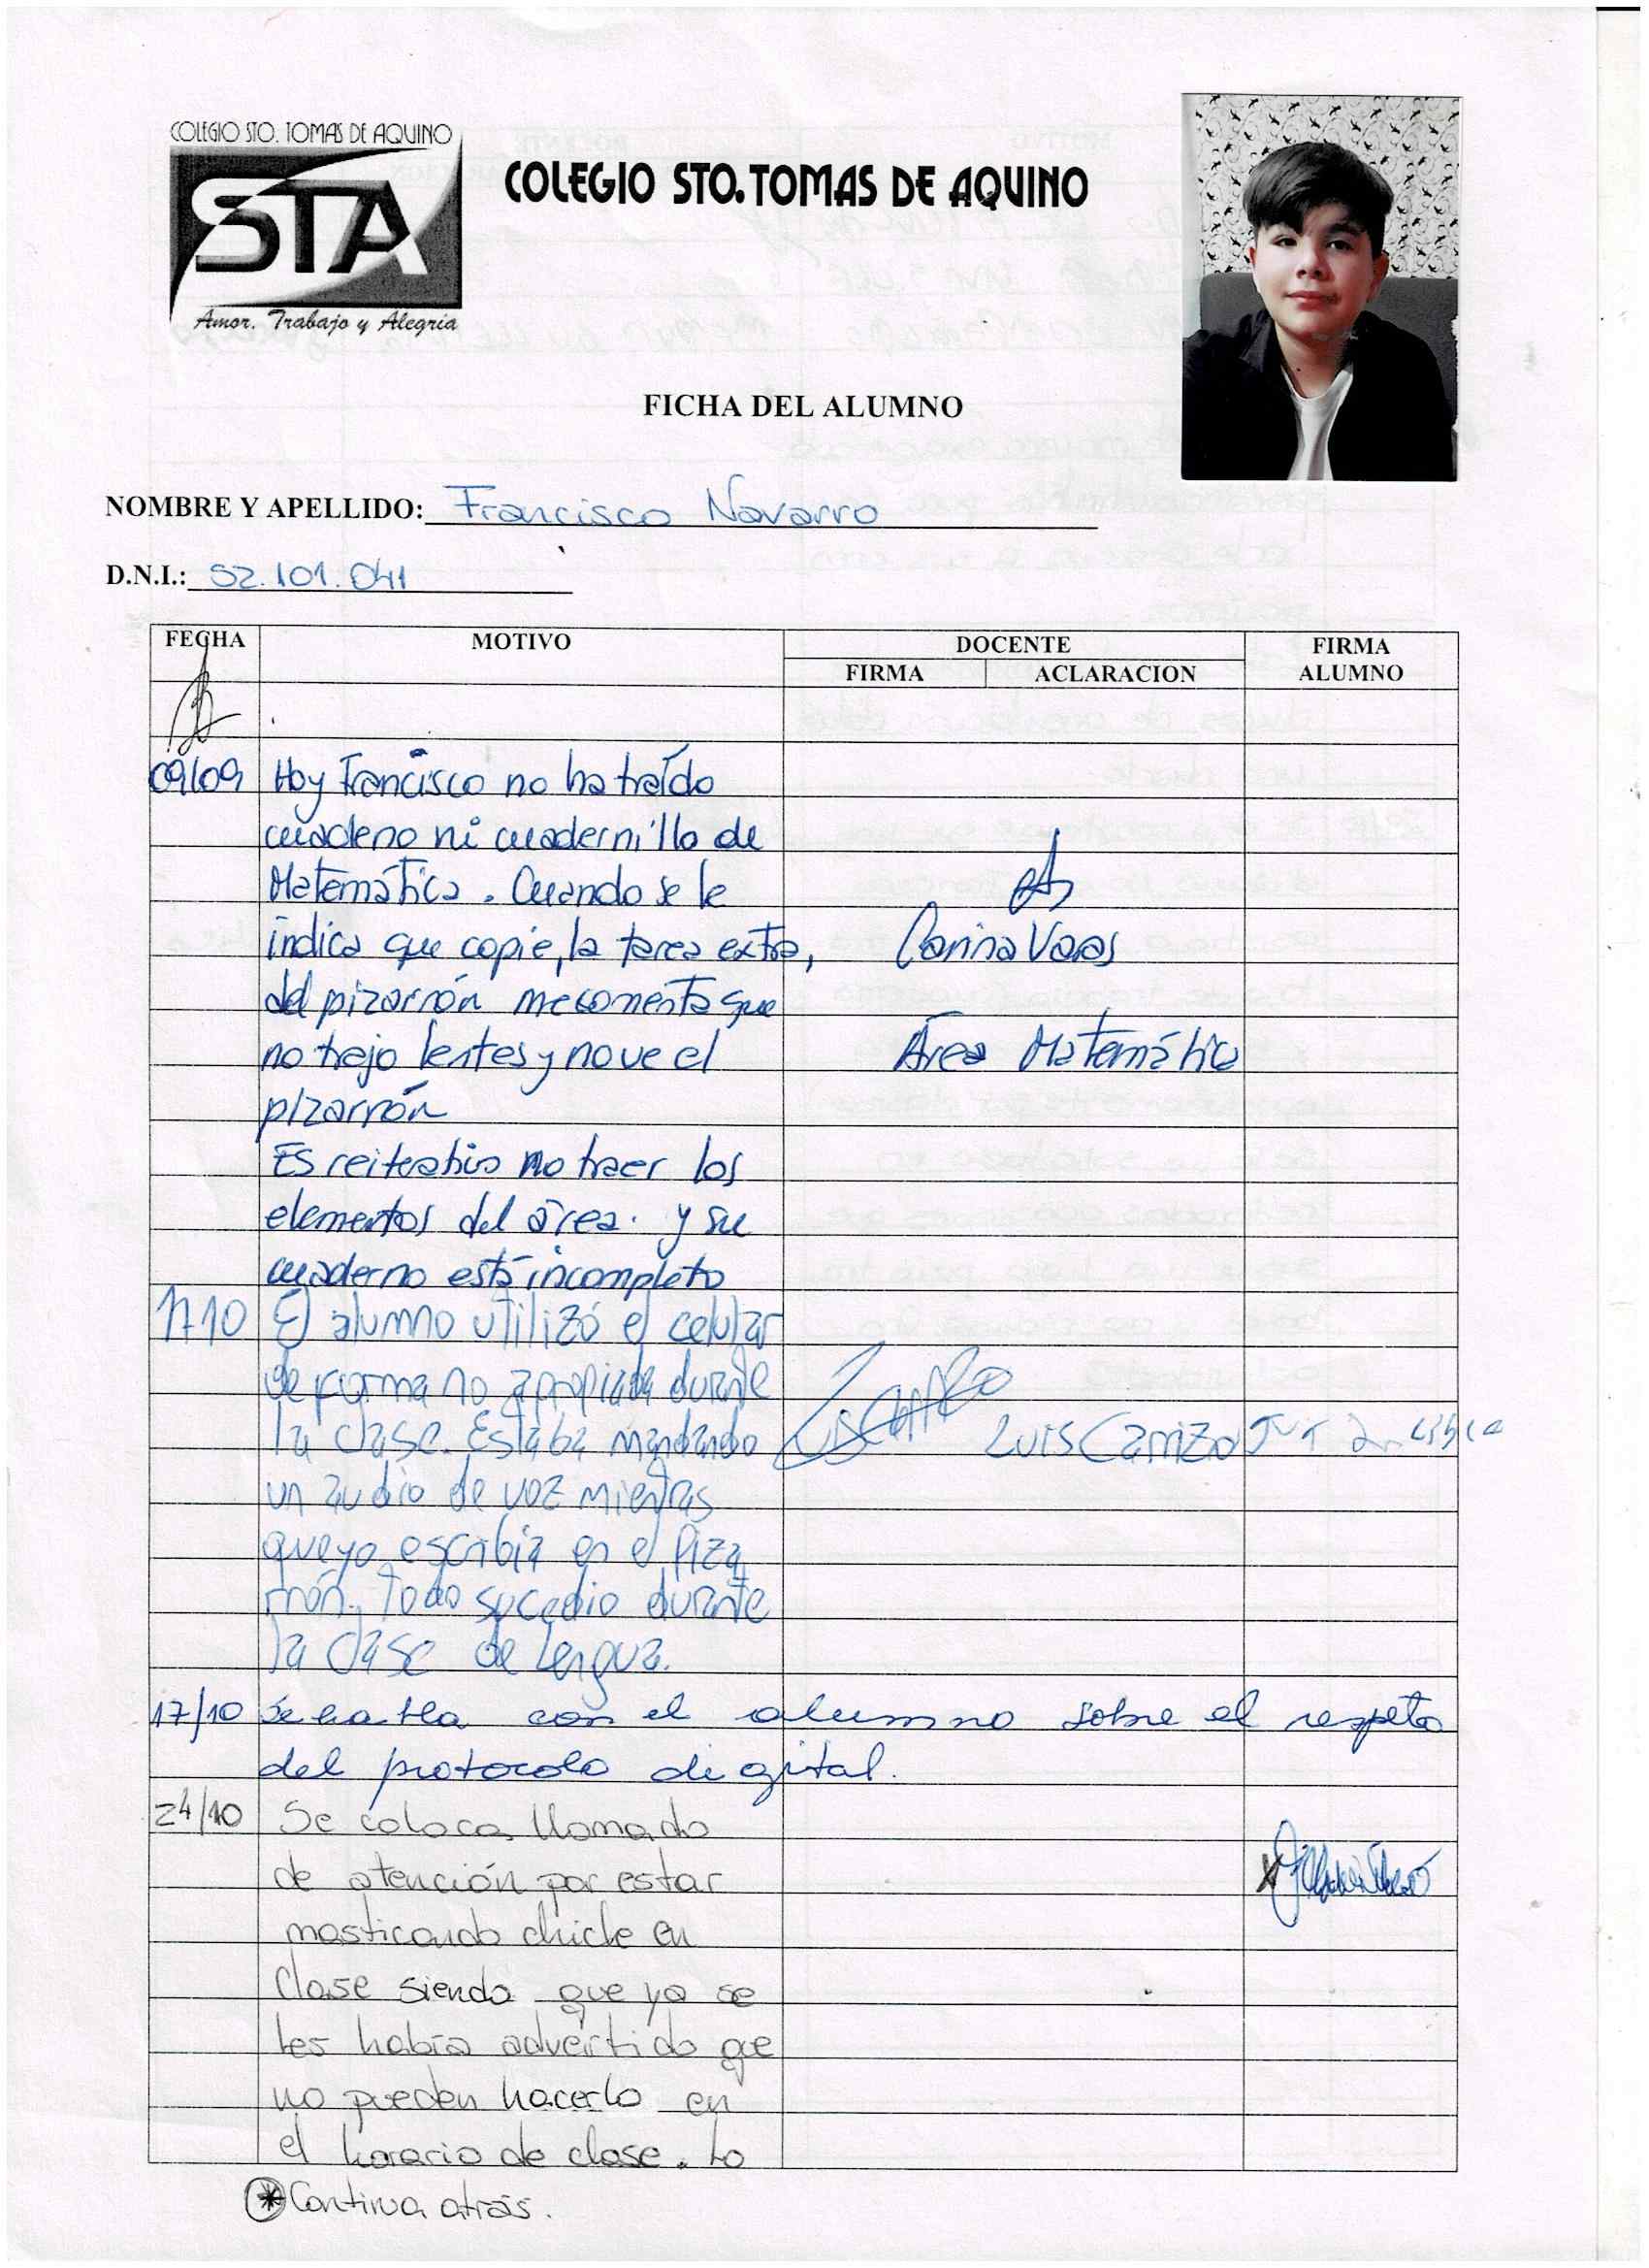 COLEGIO STO. TOMAS DE AQUINO
STA
Amor, Trabajo y Alegría
COLEGIO STO. TOMAS DE AQUINO
FICHA DEL ALUMNO
NOMBRE Y APELLIDO: Francisco Navarro
D.N.I.: 52.101.041
FECHA MOTIVO DOCENTE FIRMA ALUMNO
FIRMA ACLARACION
09/09 Hoy Francisco no ha traído
cuaderno ni cuadernillo de
Matemática. Cuando se le
indica que copie, la tarea extra,
Carina
del pizarrón me comenta que
no trajo lentes y no ve el
Área Matemática
pizarrón
Es reiterativo no traer los
elementos del área. y su
cuaderno está incompleto
17/10 El alumno utilizó el celular
de forma no apropiada durante
la clase. Estaba mandando
Luis Carrizo
un audio de voz mientras
que yo escribía en el piza
rrón. Todo sucedio durante
la clase de Lengua.
17/10 Se habla con el alumno sobre el respeto
del protocolo digital.
24/10 Se coloca llamado
de atención por estar
masticando chicle en
clase siendo que ya se
les había advertido que
no pueden hacerlo en
el horario de clase. Lo
* Continua atrás.